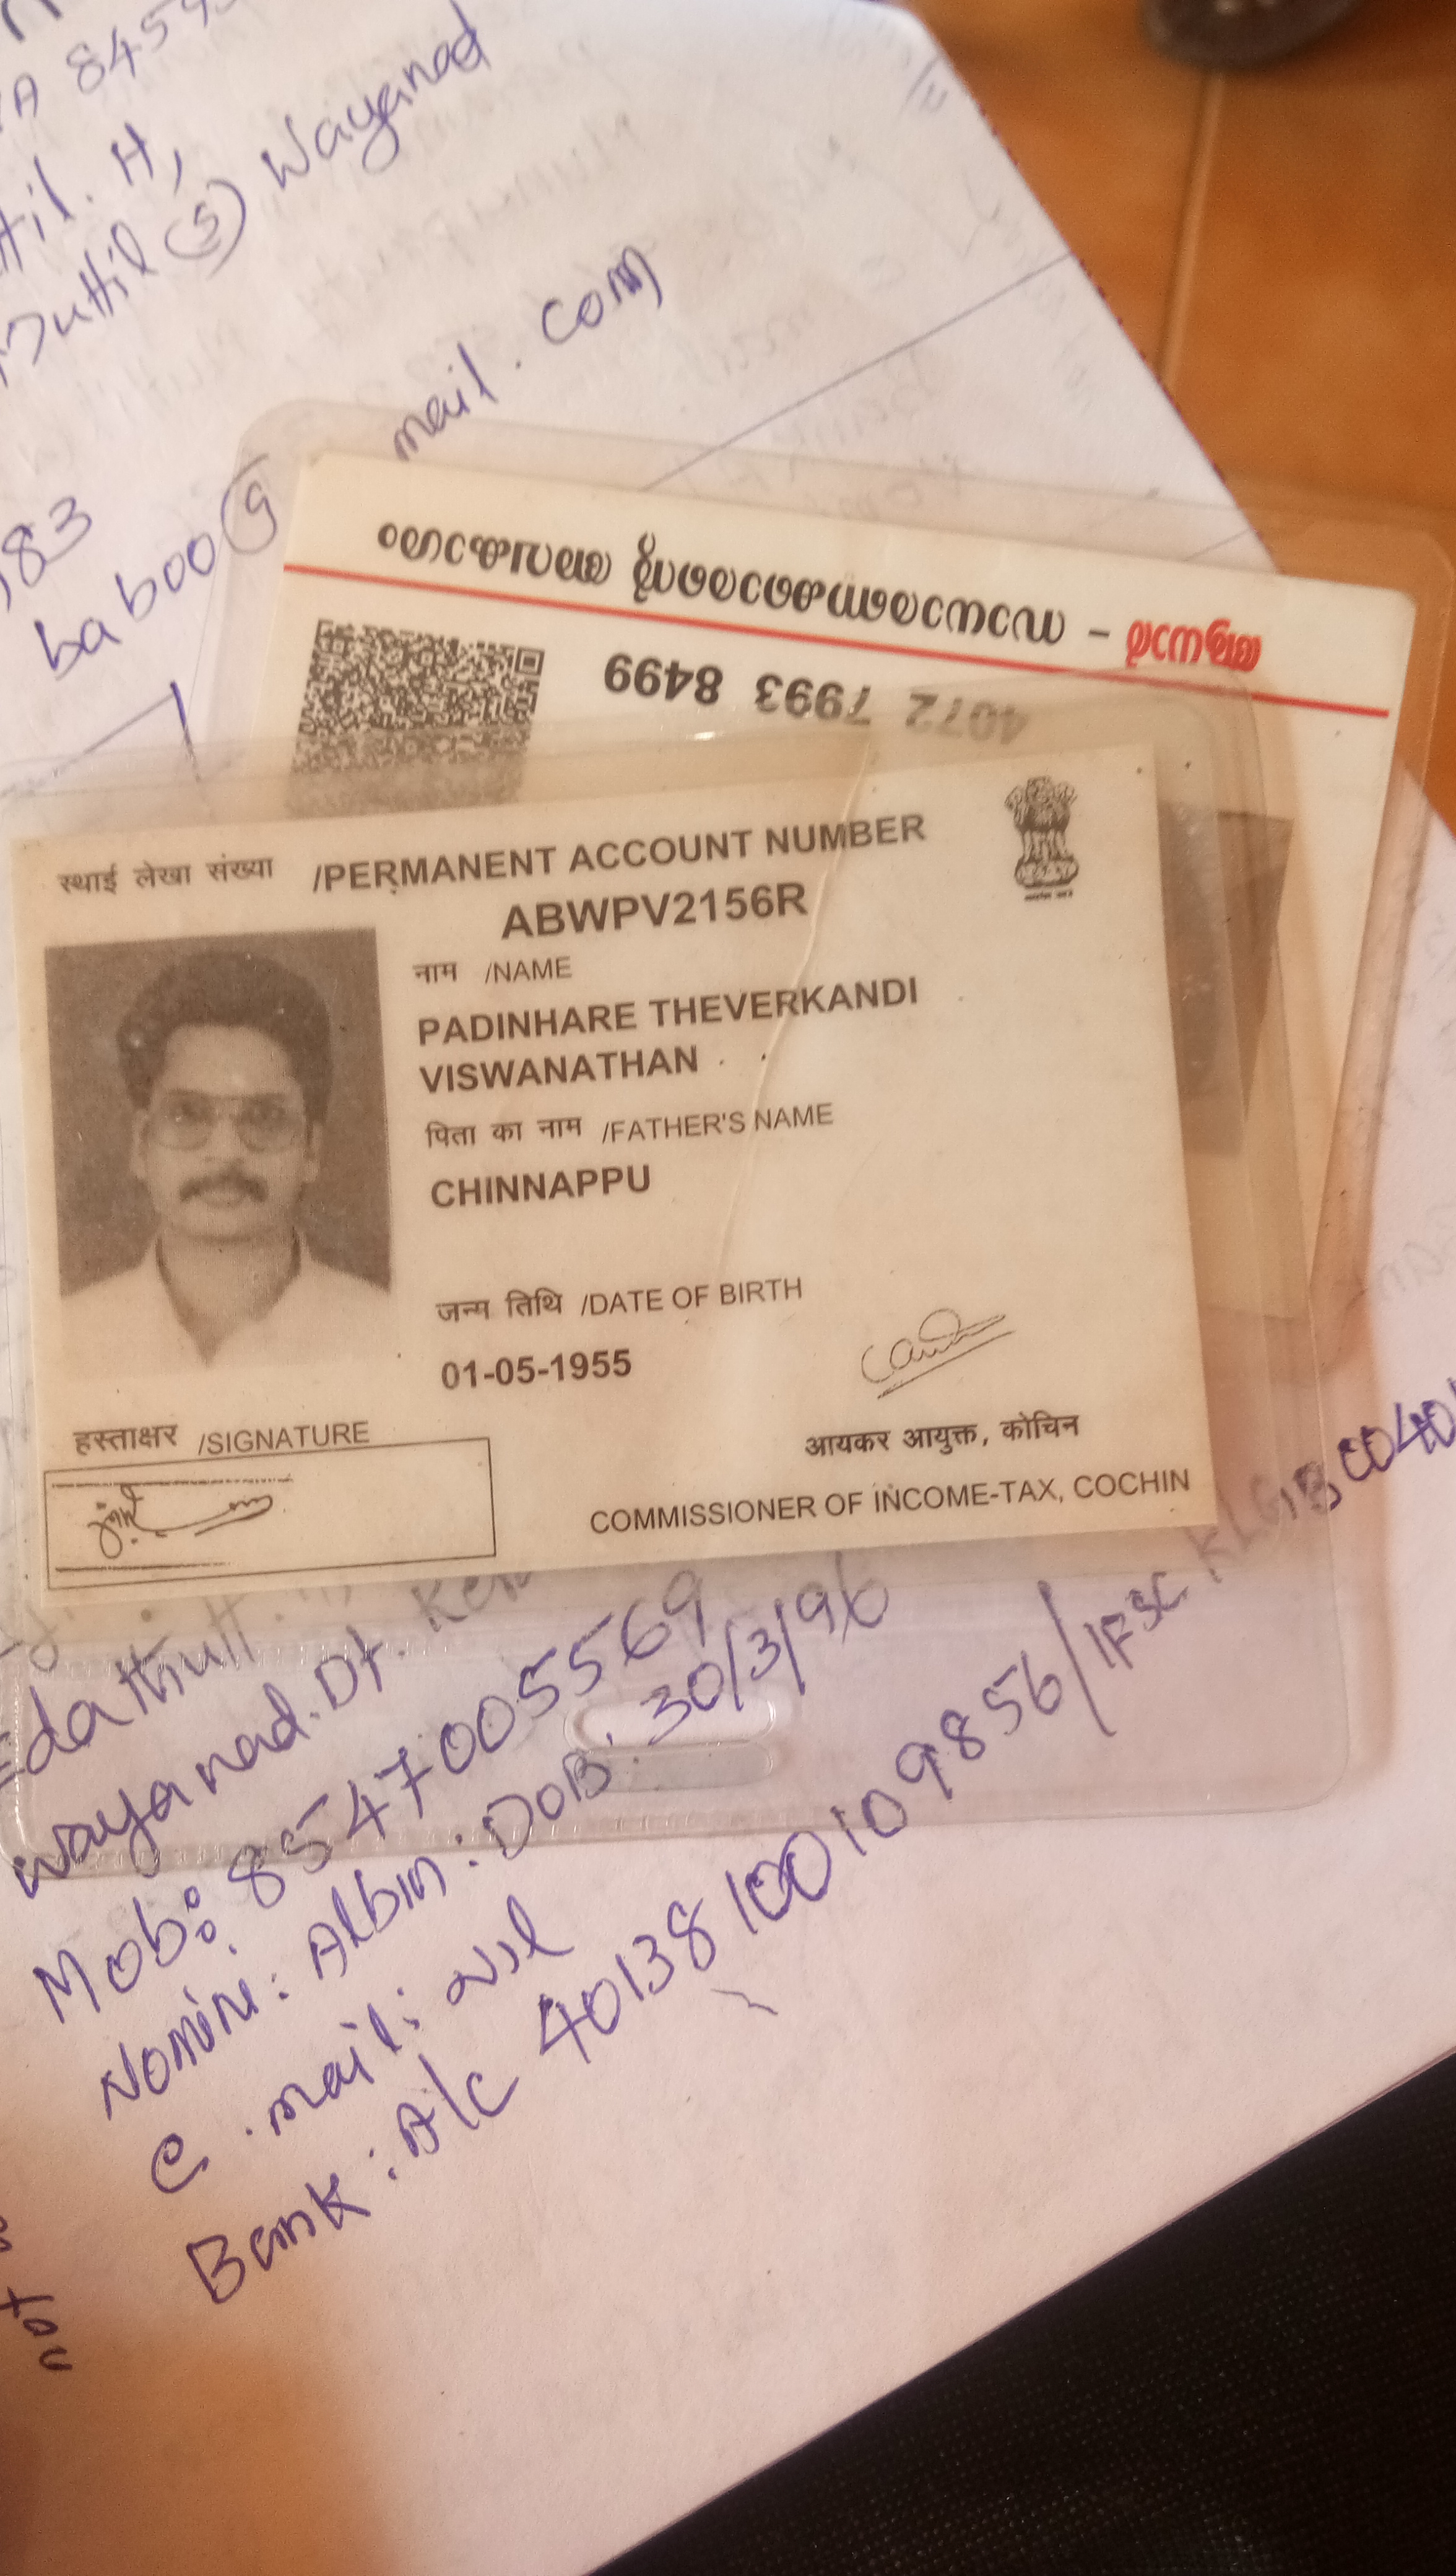 A 8459
til. H,
uttil (S) Wayanad
83
baboo@gmail.com
ആധാർ - സാധാരണക്കാരന്റെ അവകാശം
4072 7993 8499
स्थाई लेखा संख्या /PERMANENT ACCOUNT NUMBER
ABWPV2156R
नाम /NAME
PADINHARE THEVERKANDI
VISWANATHAN
पिता का नाम /FATHER'S NAME
CHINNAPPU
जन्म तिथि /DATE OF BIRTH
01-05-1955
हस्ताक्षर /SIGNATURE
आयकर आयुक्त, कोचिन
COMMISSIONER OF INCOME-TAX, COCHIN
Wayanad. Dt.
Mob: 8547005569
Nomine: Albin: DOB: 30/3/96
e.mail: Nil
Bank: A/c 40138100109856/IFSC KLGB0040